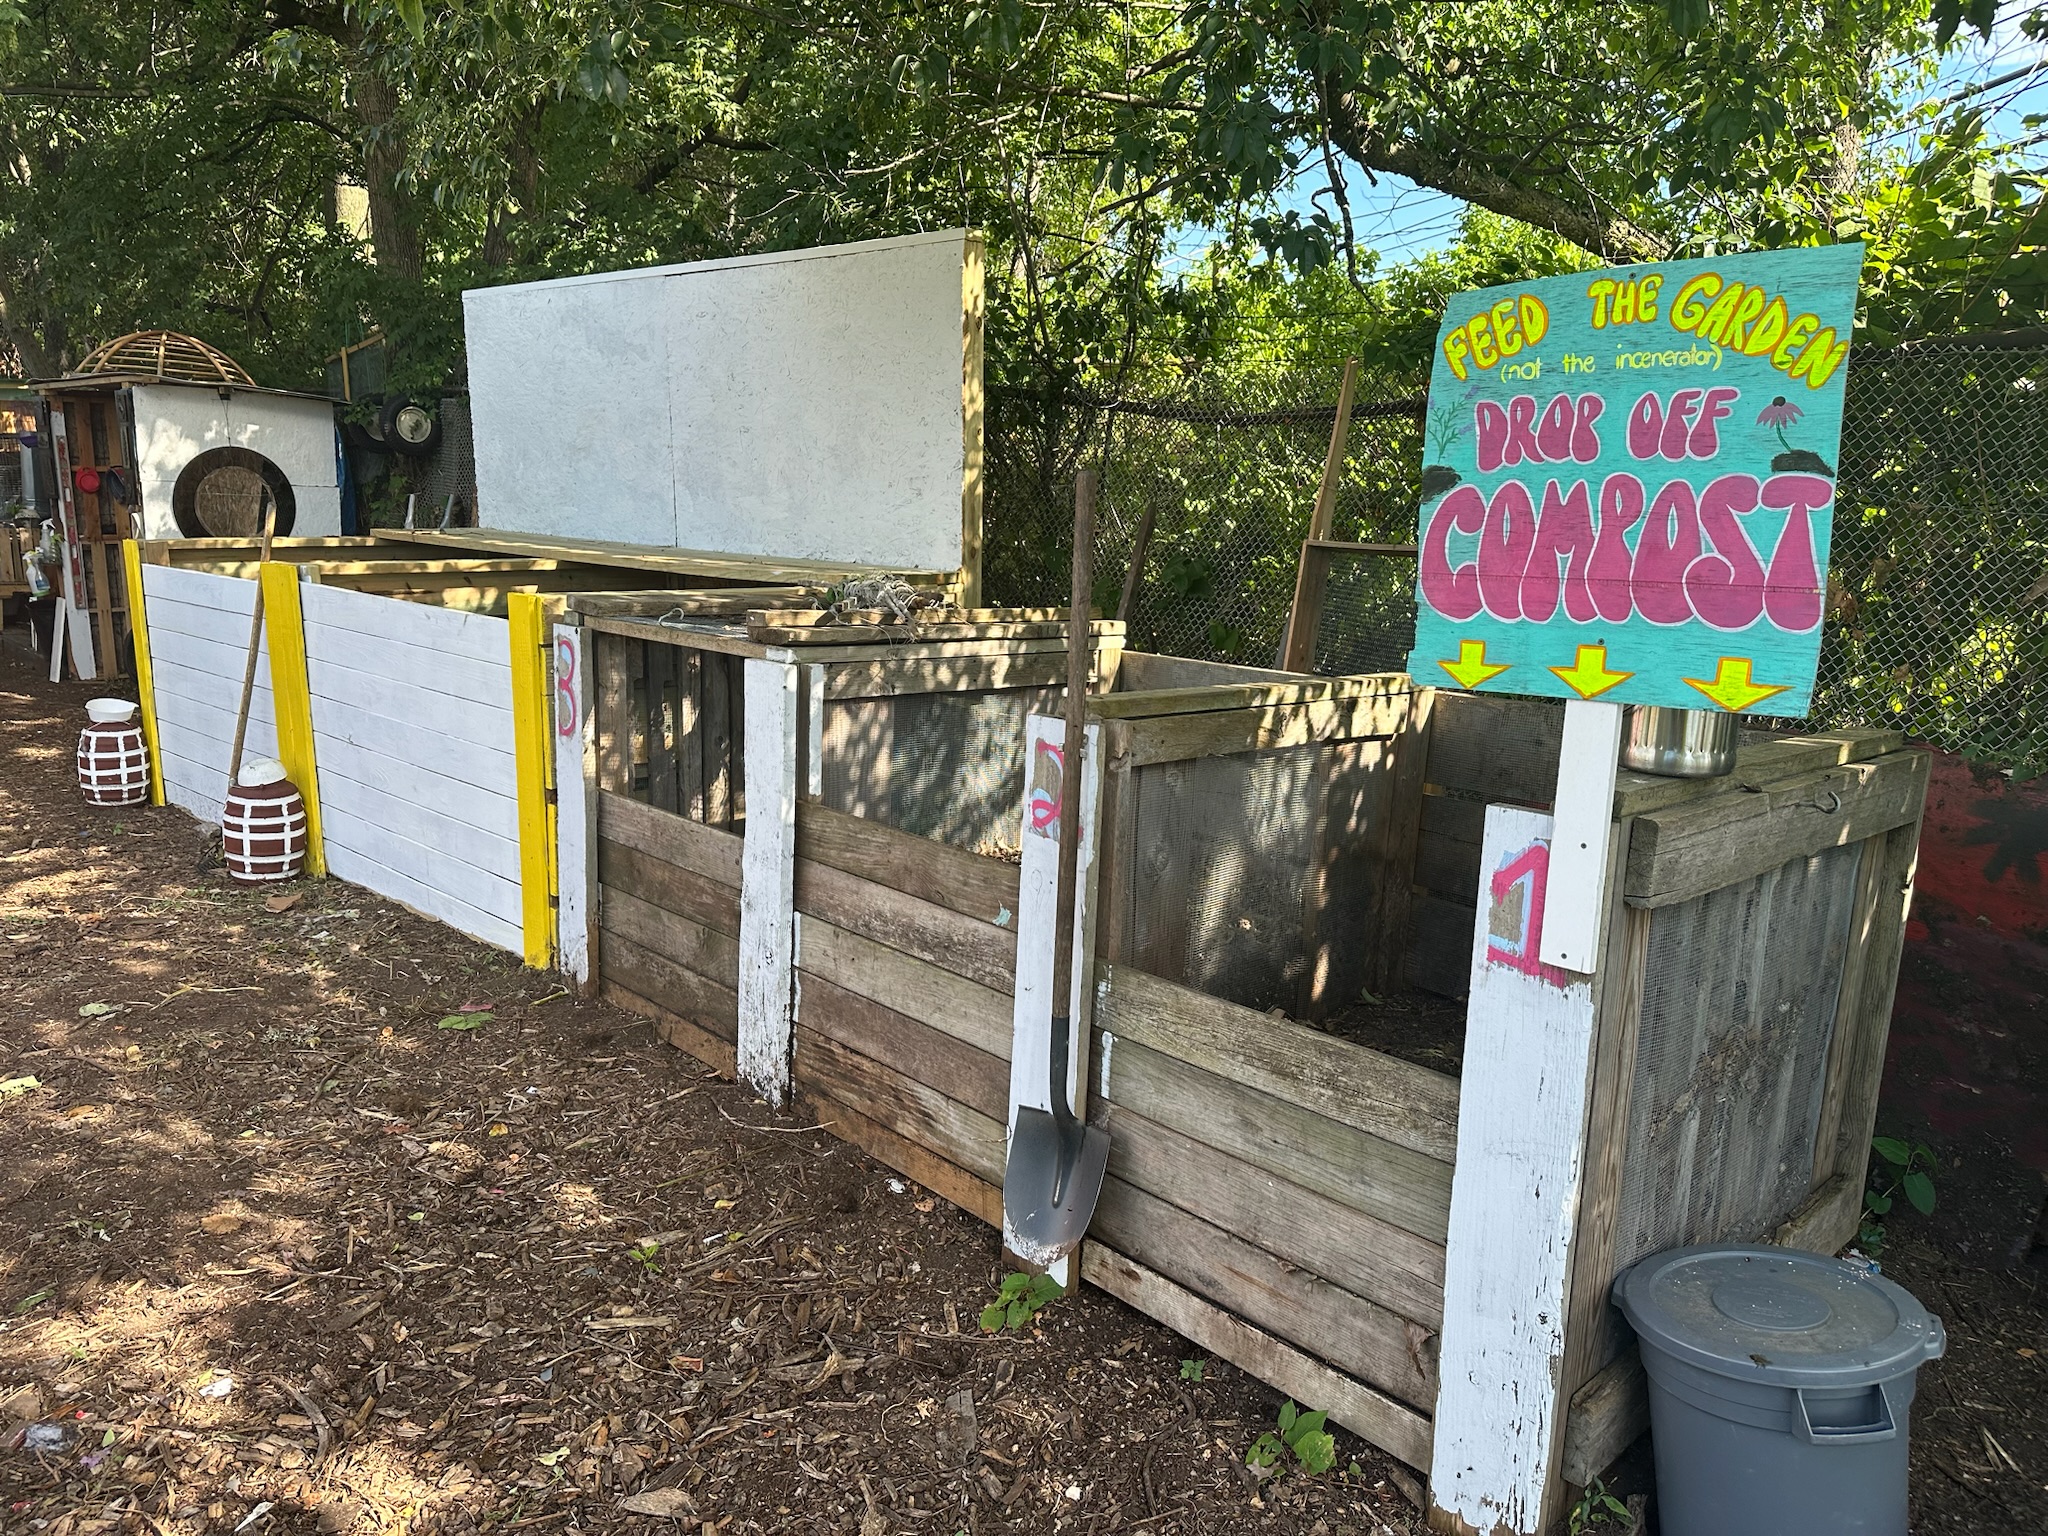 FEED THE GARDEN
(not the incenerator)
DROP OFF
COMPOST
3
2
1